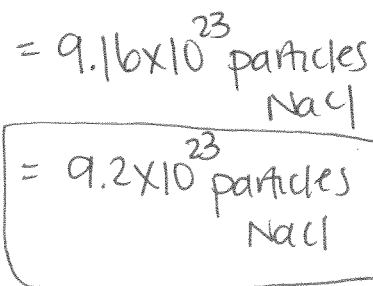 = 9.16x10²³ particles
NaCl
= 9.2x10²³ particles
NaCl